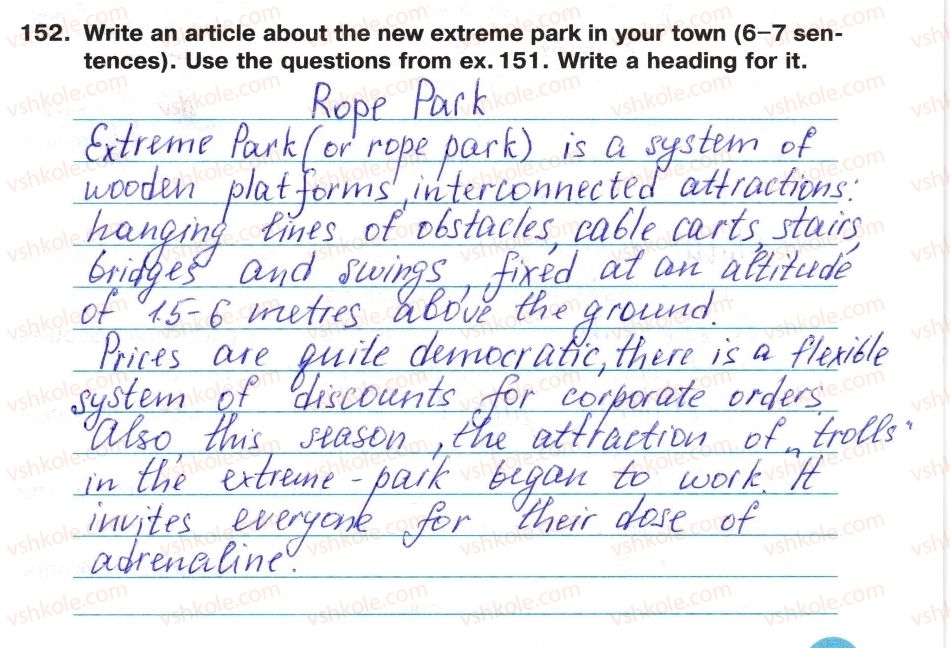 152. Write an article about the new extreme park in your town (6–7 sen-
tences). Use the questions from ex. 151. Write a heading for it.
Rope Park
Extreme Park (or rope park) is a system of
wooden platforms, interconnected attractions:
hanging lines of obstacles, cable carts, stairs,
bridges and swings, fixed at an altitude
of 1.5-6 metres above the ground.
Prices are quite democratic, there is a flexible
system of discounts for corporate orders.
Also, this season, the attraction of „trolls“
in the extreme-park began to work. It
invites everyone for their dose of
adrenaline.
vshkole.com